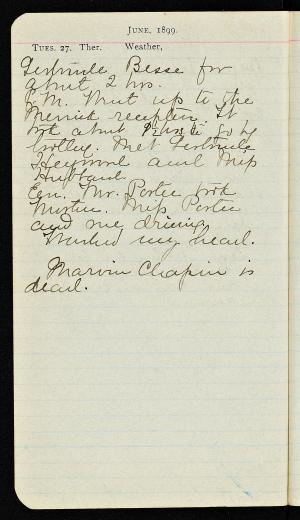 JUNE, 1899.
TUES. 27. Ther. Weather,
Gertrude Besse for
about 2 hrs.
P.M. Went up to the
Merrick reception. It
was about
trolley. Met Gertrude
and Miss
Hubbard.
Eve. Mr. Porter took
Miss Porter
and me driving.
Washed my head.
Marvin Chapin is
dead.